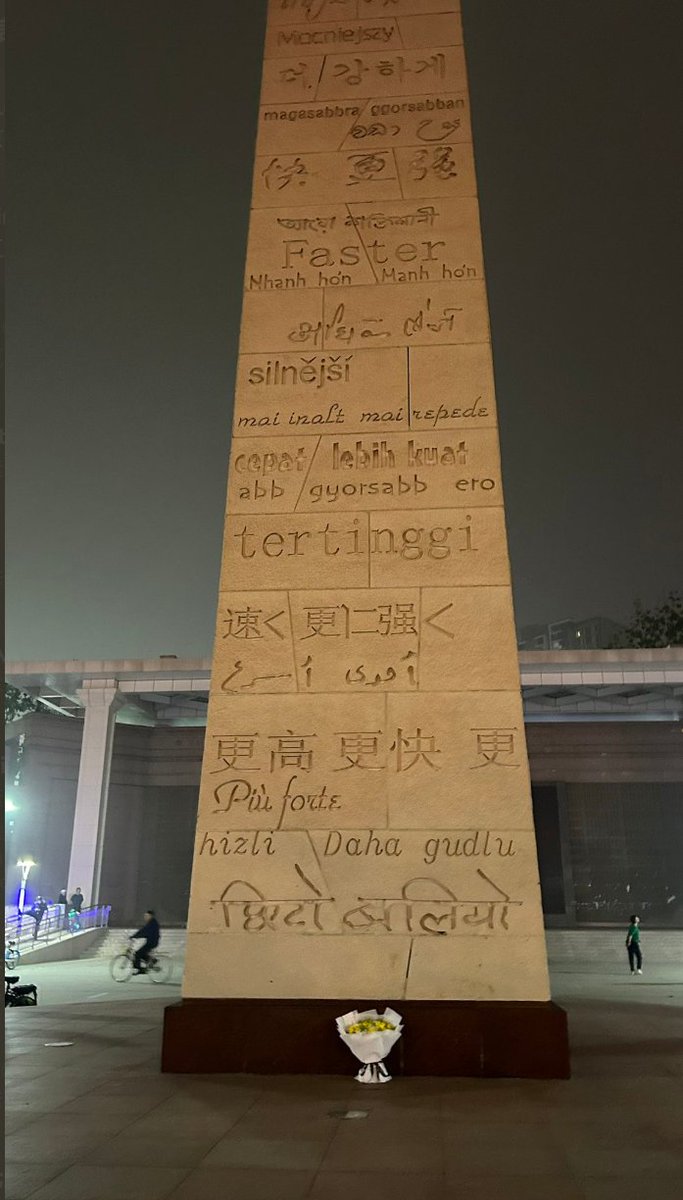 Mocniejszy
더 강하게
magasabbra gyorsabban
快 更 强
আরো শক্তিশালী
Faster
Nhanh hơn Manh hơn
silnější
mai inalt mai repede
cepat lebih kuat
abb gyorsabb ero
tertinggi
速く 更に强く
أقوى أسرع
更高 更快 更
Più forte
hizli Daha gudlu
छिटो बलियो